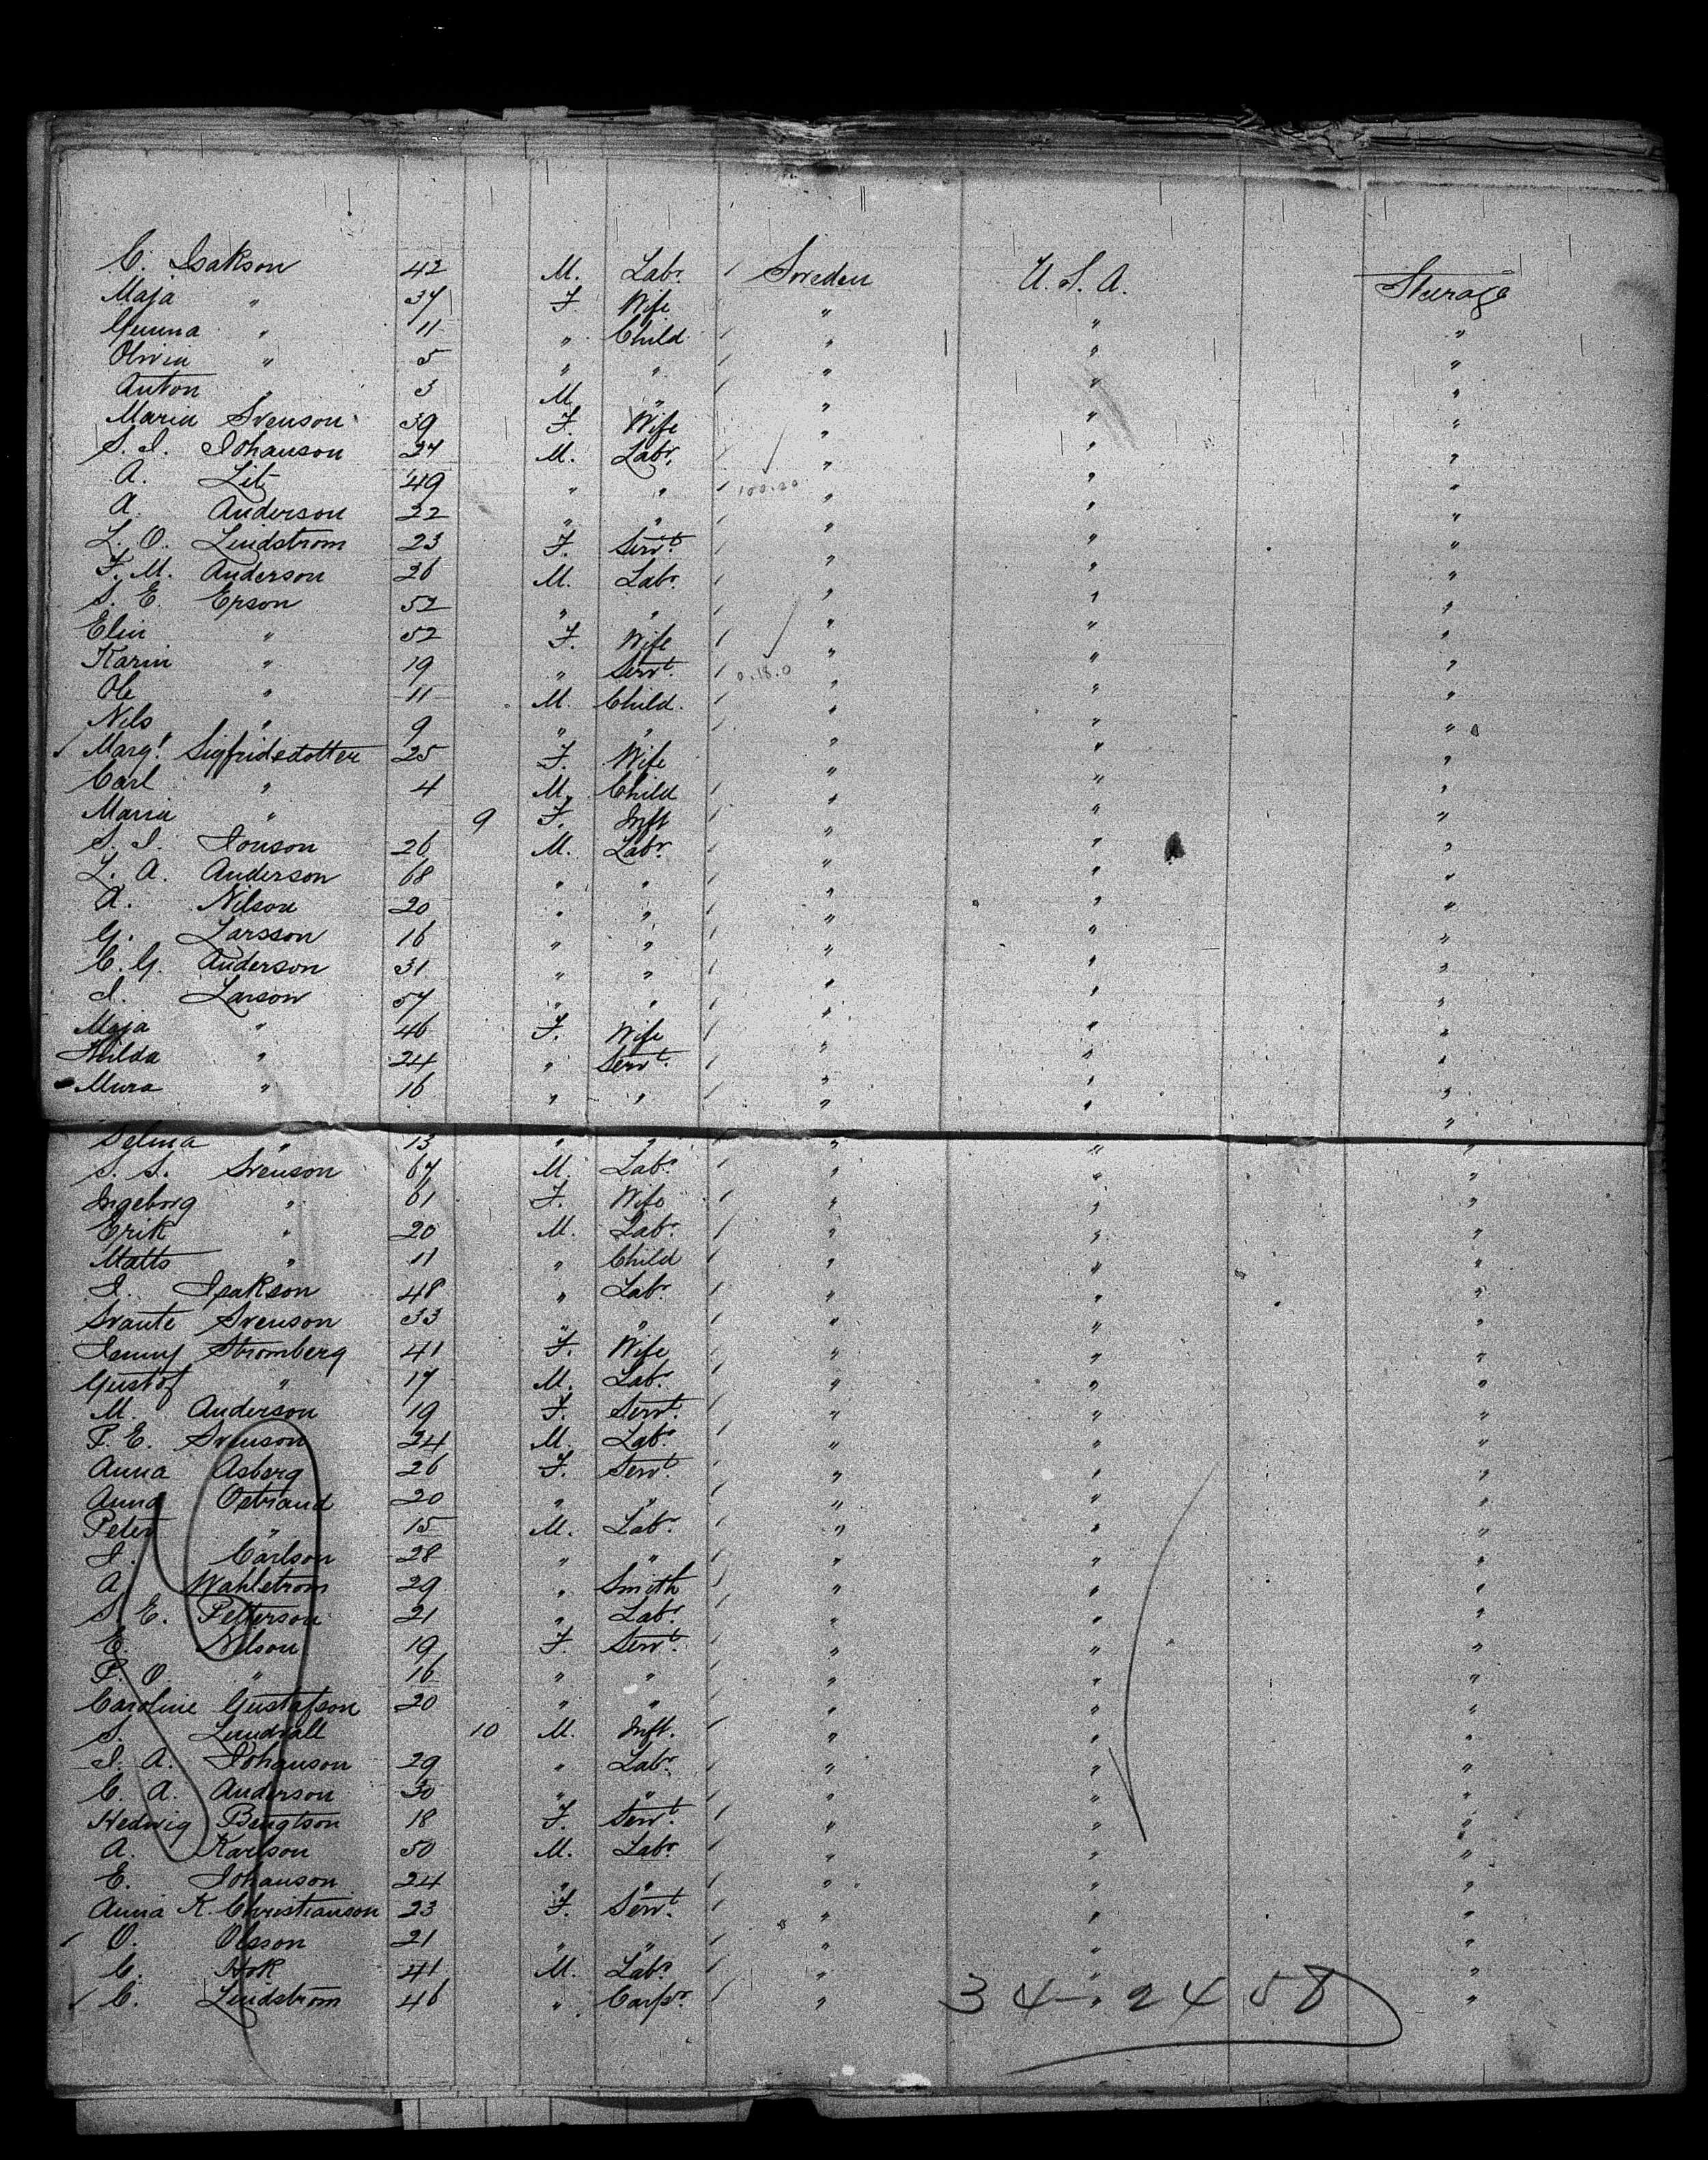 C. Isakson 42 M. Labr / Sweden U.S.A. Steerage
Maja " 37 F. Wife " " "
Gunna " 11 " Child / " " "
Olivia " 5 " " / " " "
Anton " 3 M. " / " " "
Maria Svenson 39 F. Wife / " " "
S. I. Johanson 27 M. Labr. / " " "
A. Lit 49 " " / 100.20 " " "
A. Anderson 22 " " / " " "
L. O. Lindstrom 23 F. Servt. / " " "
F. M. Anderson 26 M. Labr / " " "
S. E. Erson 52 " " / " " "
Elin " 52 F. Wife / " " "
Karin " 19 " Servt. / 0.18.0 " " "
Ole " 11 M. Child. / " " "
Nils " 9 " " / " " "
✓ Margt. Sigfridsdotter 25 F. Wife " " "
Carl " 4 M. Child / " " "
Maria " 9 F. Inft / " " "
S. I. Jonson 26 M. Labr. / " " "
L. A. Anderson 68 " " / " " "
A. Nilson 20 " " / " " "
G. Larsson 16 " " / " " "
C. G. Anderson 31 " " / " " "
I. Larson 57 " " / " " "
Maja " 46 F. Wife / " " "
Hilda " 24 " Servt. / " " "
Mura " 16 " " / " " "
Selma " 13 " " / " " "
S. S. Svenson 67 M. Labr. / " " "
Ingeborg " 61 F. Wife / " " "
Erik " 20 M. Labr. / " " "
Matts " 11 " Child / " " "
I. Isakson 48 " Labr. / " " "
Svante Svenson 33 " " / " " "
Jenny Stromberg 41 F. Wife / " " "
Gustof " 17 M. Labr. / " " "
M. Anderson 19 F. Servt. / " " "
P. E. Svenson 24 M. Labr. / " " "
Anna Asberg 26 F. Servt. / " " "
Anna Ostrand 20 " " / " " "
Peter " 15 M. Labr. / " " "
I. Carlson 28 " " / " " "
A. Wahlstrom 29 " Smith / " " "
S. E. Petterson 21 " Labr. / " " "
E. Nelson 19 F. Servt. / " " "
P. O. " 16 " " / " " "
Caroline Gustafson 20 " " / " " "
S. Lundvall 10 M. Inft. / " " "
I. A. Johanson 29 " Labr. / " " "
C. A. Anderson 30 " " / " " "
Hedwig Bengtson 18 F. Servt. / " " "
A. Karlson 50 M. Labr. / " " "
E. Johanson 24 " " / " " "
Anna K. Christianson 23 F. Servt. / " " "
O. Olsson 21 " " / " " "
C. Hok 41 M. Labr. / " " "
✓ C. Lindstrom 46 " Carpr. / " " "
34-2458